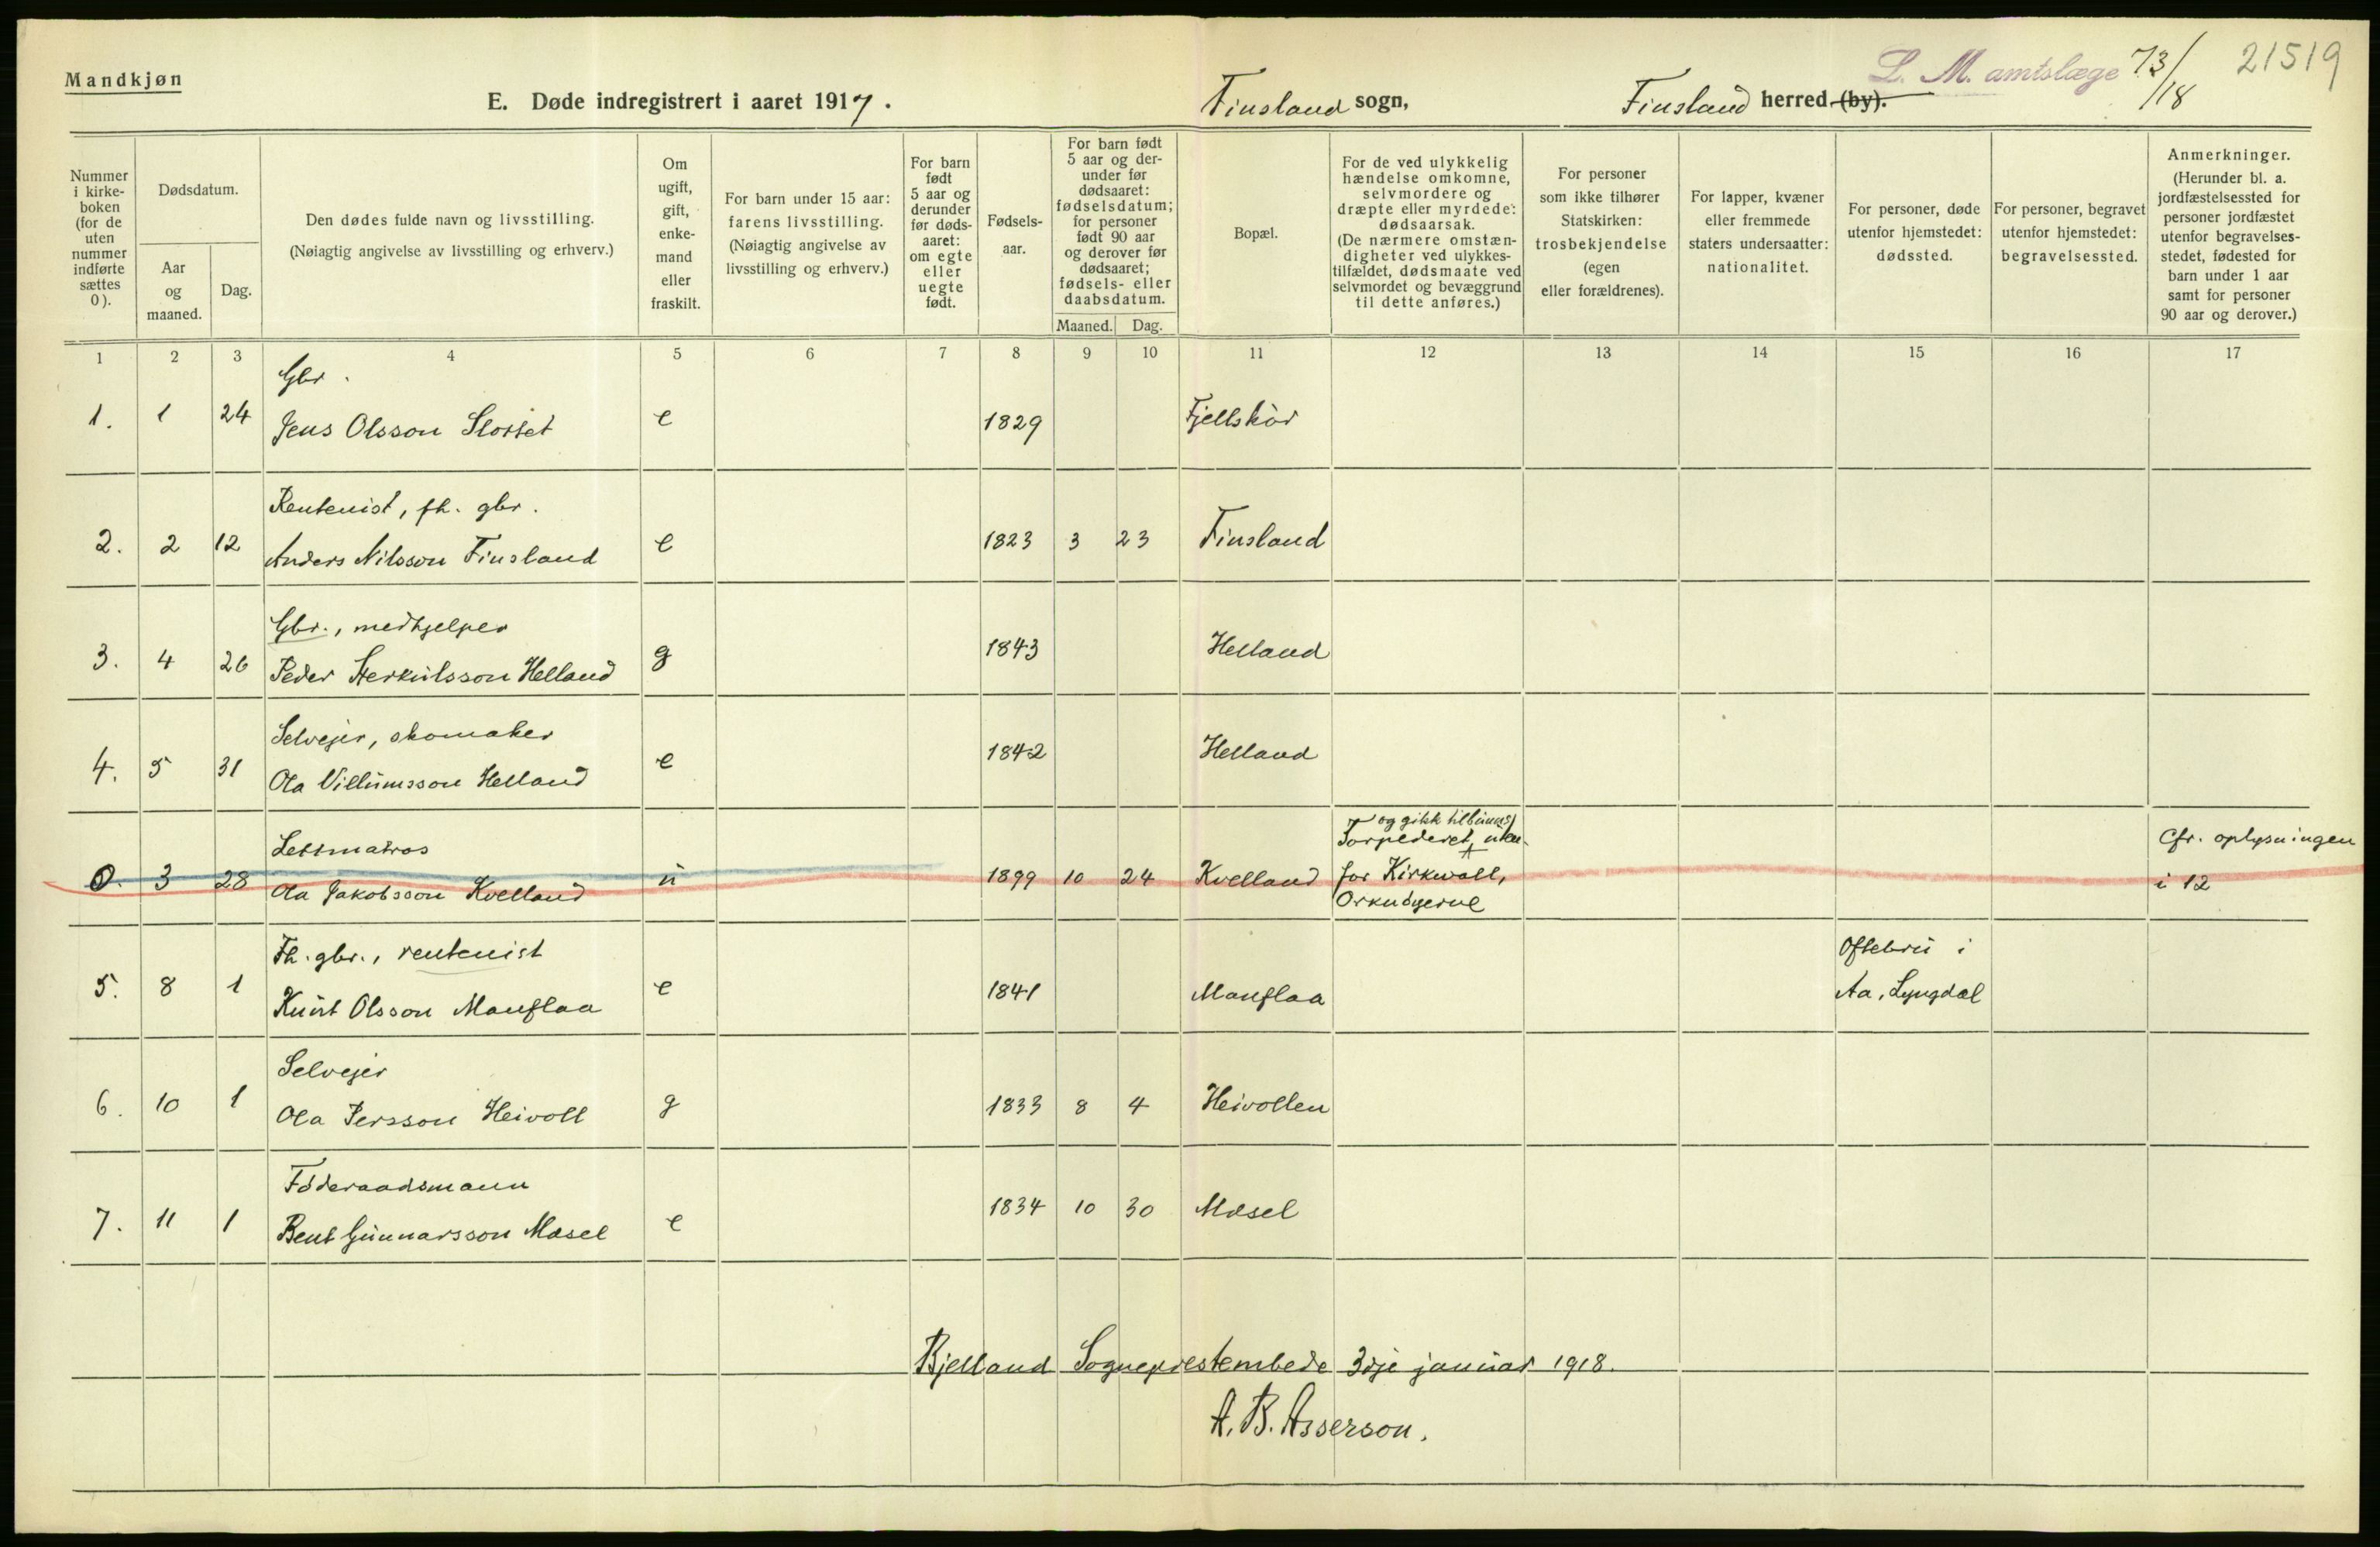 Mandkjøn
E. Døde indregistrert i aaret 1917.
Finsland sogn,
Finsland herred (by).
L. M. amtslæge 73/18
21519
Nummer i kirke-boken (for de uten nummer indførte sættes 0).
Dødsdatum.
Aar og maaned.
Dag.
Den dødes fulde navn og livsstilling.
(Nøiagtig angivelse av livsstilling og erhverv.)
Om ugift, gift, enke-mand eller fraskilt.
For barn under 15 aar: farens livsstilling. (Nøiagtig angivelse av livsstilling og erhverv.)
For barn født 5 aar og derunder før døds-aaret: om egte eller uegte født.
Fødsels-aar.
For barn født 5 aar og der-under før dødsaaret: fødselsdatum; for personer født 90 aar og derover før dødsaaret; fødsels- eller daabsdatum.
Maaned. Dag.
Bopæl.
For de ved ulykkelig hændelse omkomne, selvmordere og dræpte eller myrdede: dødsaarsak. (De nærmere omstæn-digheter ved ulykkes-tilfældet, dødsmaate ved selvmordet og bevæggrund til dette anføres.)
For personer som ikke tilhører Statskirken: trosbekjendelse (egen eller forældrenes).
For lapper, kvæner eller fremmede staters undersaatter: nationalitet.
For personer, døde utenfor hjemstedet: dødssted.
For personer, begravet utenfor hjemstedet: begravelsessted.
Anmerkninger. (Herunder bl. a. jordfæstelsessted for personer jordfæstet utenfor begravelses-stedet, fødested for barn under 1 aar samt for personer 90 aar og derover.)
1 2 3 4 5 6 7 8 9 10 11 12 13 14 15 16 17
Gbr.
1. 1 24 Jens Olsson e 1829 Fjellskår
Rentenist, fh. gbr.
2. 2 12 Anders Nilsson Finsland e 1823 3 23 Finsland
Gbr., medhjelper
3. 4 26 Peder Herkulsson Helland g 1843 Helland
Selvejer, skomaker
4. 5 31 Ola Villumsson Helland e 1842 Helland
og gikk tilbunns
Lettmatros Torpederet uten-
0. 3 28 Ola Jakobsson Kvelland u 1899 10 24 Kvelland for Kirkwall,
Orknöyerne
Cfr. oplysningen
i 12
Fh. gbr., rentenist
5. 8 1 Knut Olsson Manflaa e 1841 Manflaa
Oftebru i
Aa, Lyngdal
Selvejer
6. 10 1 Ola Persson Heivoll g 1833 8 4 Heivollen
Föderaadsmann
7. 11 1 Bent Gunnarsson Mæsel e 1834 10 30 Mæsel
Bjelland Sogneprestembede 3dje januar 1918.
A. B. Asserson.